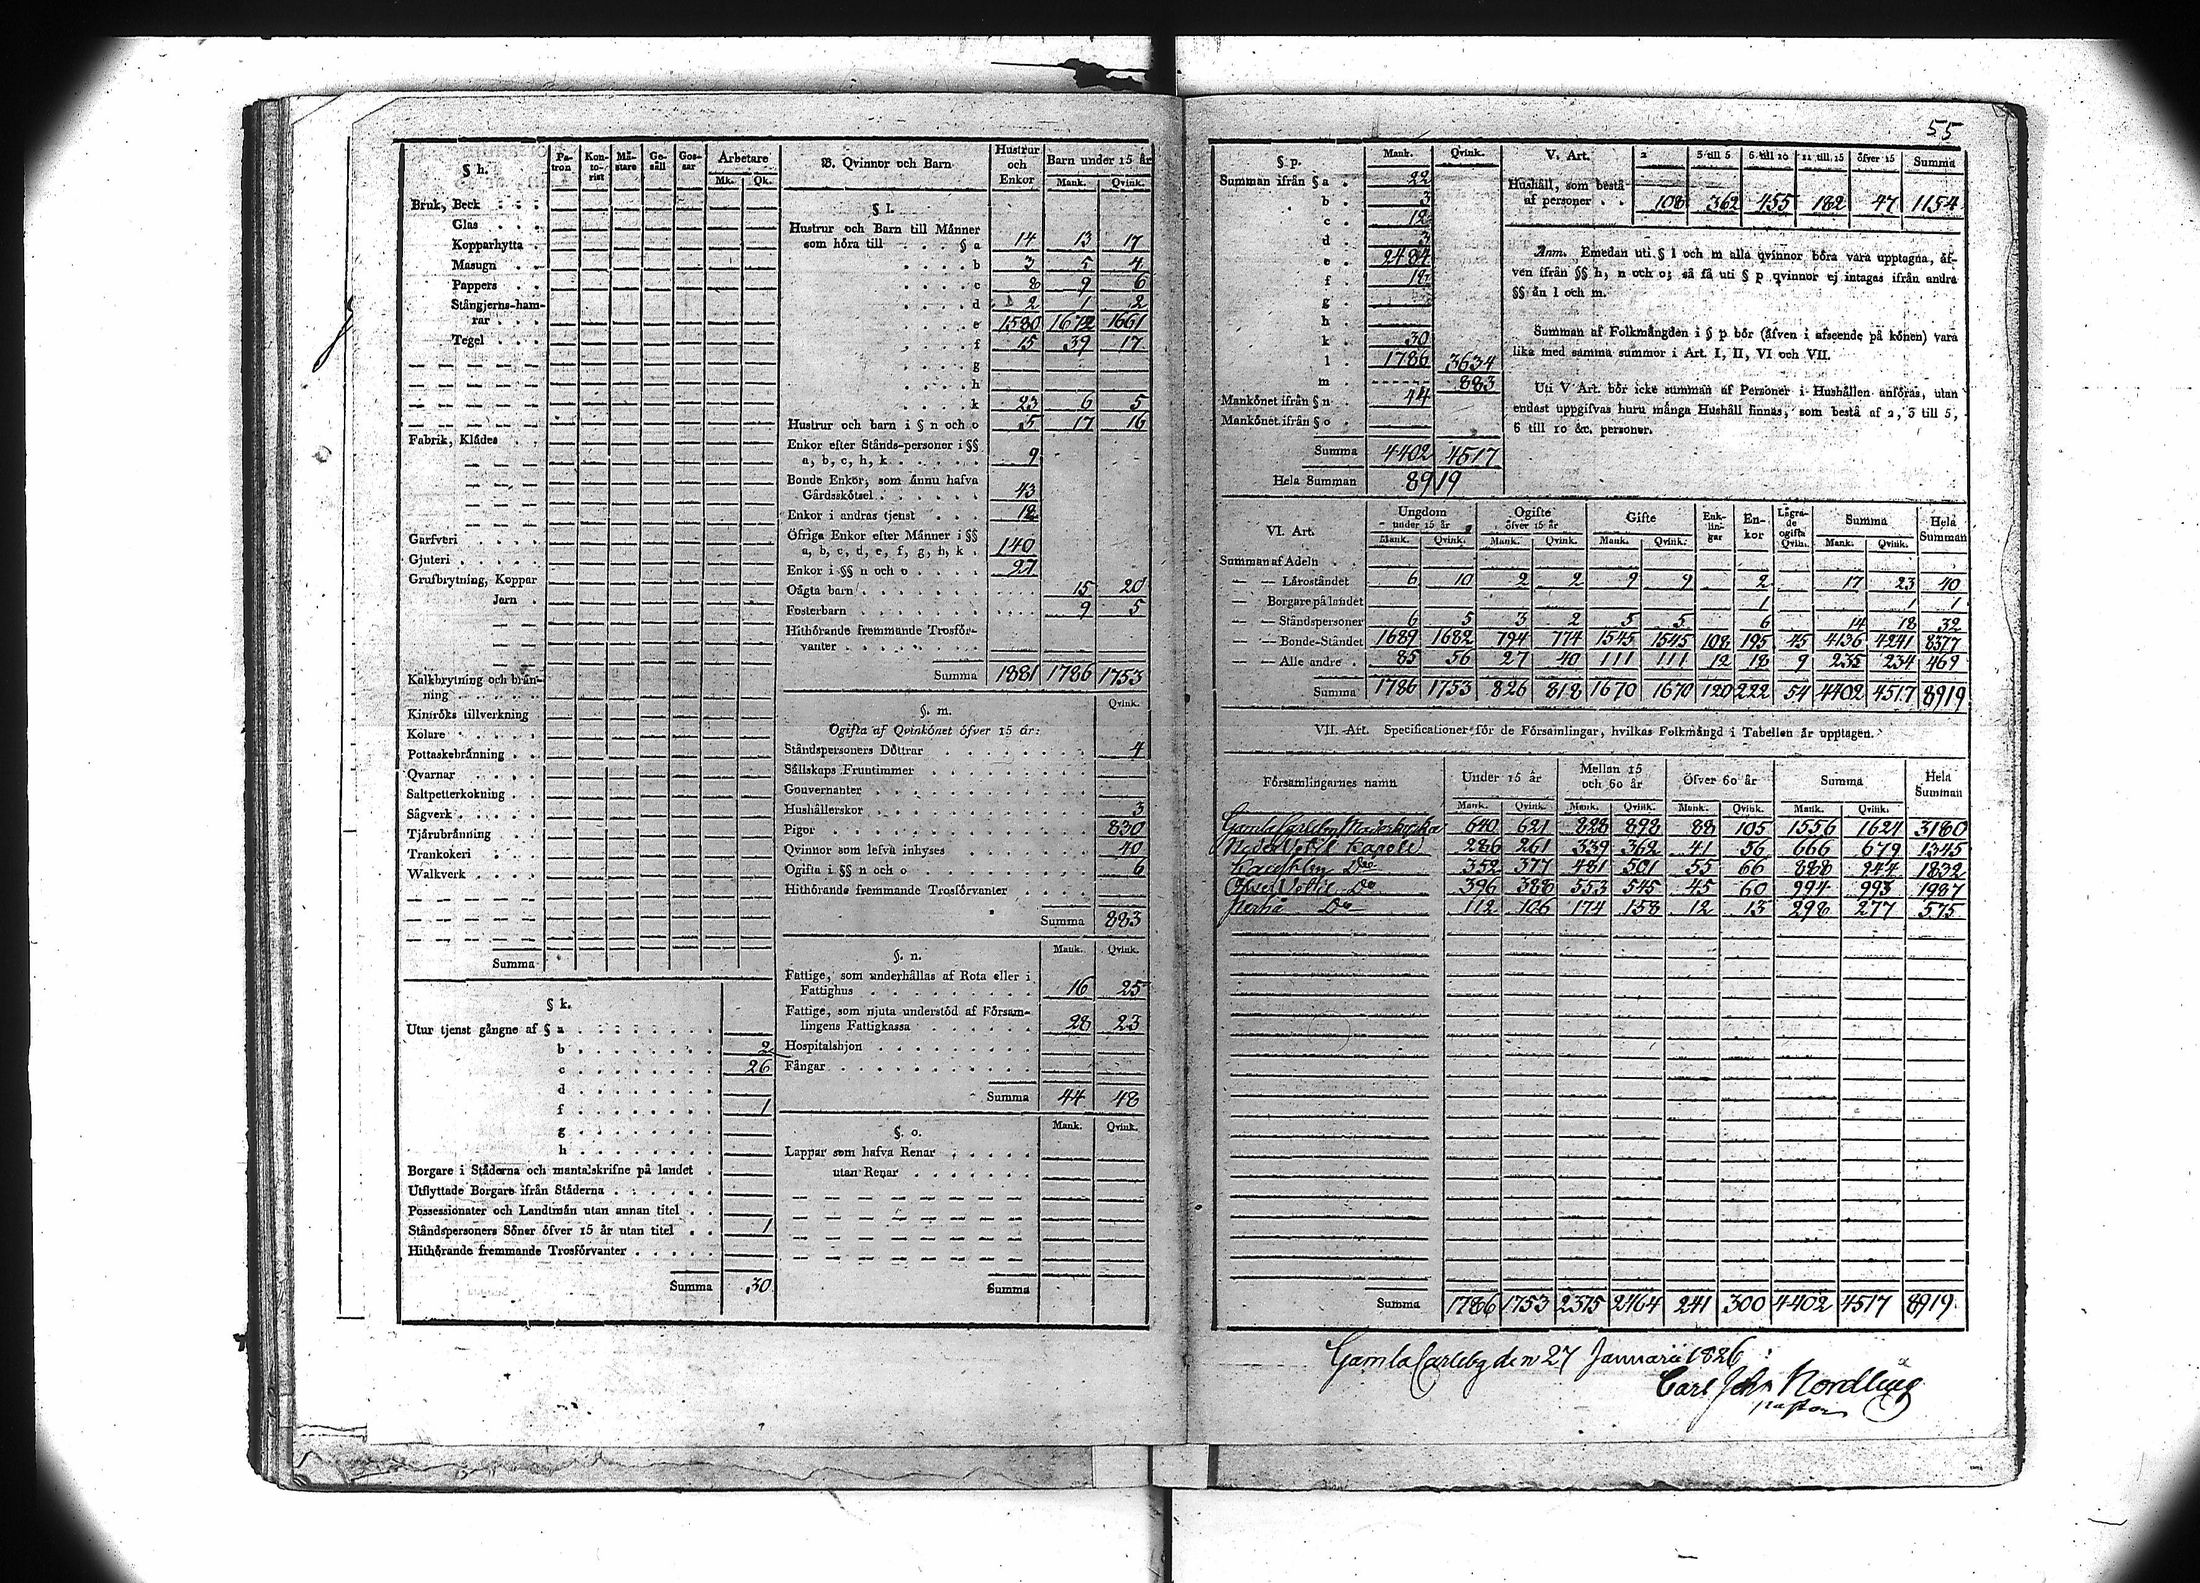 55
§ h.
Patron Kontorist Mästare Gesäll Gossar Arbetare
Mk. Qk.
Bruk, Beck
Glas
Kopparhytta
Masugn
Pappers
Stångjerns-hamrar
Tegel
Fabrik, Klädes
Garfveri
Gjuteri
Grufbrytning, Koppar
Jern
Kalkbrytning och bränning
Kimröks tillverkning
Kolare
Pottaskebränning
Qvarnar
Saltpetterkokning
Sågverk
Tjärubränning
Trankokeri
Walkverk
Summa
§ k.
Utur tjenst gångne af § a
b 2
c 26
d
f 1
g
h
Borgare i Städerna och mantalskrifne på landet
Utflyttade Borgare ifrån Städerna
Possessionater och Landtmän utan annan titel
Ståndspersoners Söner öfver 15 år utan titel 1
Hithörande fremmande Trosförvanter
Summa 30
B. Qvinnor och Barn Hustrur och Enkor Barn under 15 år
Mank. Qvink.
§ l.
Hustrur och Barn till Männer
som höra till § a 14 13 17
b 3 5 4
c 8 9 6
d 2 1 2
e 1580 1672 1661
f 15 39 17
g
h
k 23 6 5
Hustrur och barn i § n och o 5 17 16
Enkor efter Stånds-personer i §§
a, b, c, h, k 9
Bonde Enkor, som ännu hafva
Gårdsskötsel 43
Enkor i andras tjenst 12
Öfriga Enkor efter Männer i §§
a, b, c, d, e, f, g, h, k 140
Enkor i §§ n och o 27
Oägta barn 15 20
Fosterbarn 9 5
Hithörande fremmande Trosförvanter
Summa 1881 1786 1753
§. m. Qvink.
Ogifta af Qvinkönet öfver 15 år:
Ståndspersoners Döttrar 4
Sällskaps Fruntimmer
Gouvernanter
Hushållerskor 3
Pigor 830
Qvinnor som lefva inhyses 40
Ogifta i §§ n och o 6
Hithörande fremmande Trosförvanter
Summa 883
§. n. Mank. Qvink.
Fattige, som underhållas af Rota eller i
Fattighus 16 25
Fattige, som njuta understöd af Församlingens Fattigkassa 28 23
Hospitalshjon
Fångar
Summa 44 48
§. o. Mank. Qvink.
Lappar som hafva Renar
utan Renar
Summa
§ p. Mank. Qvink.
Summan ifrån § a 22
b 3
c 12
d 3
e 2484
f 18
g
h
k 30
l 1786 3634
m 883
Mankönet ifrån § n 44
Mankönet ifrån § o
Summa 4402 4517
Hela Summan 8919
V. Art. 2 3 till 5 6 till 10 11 till 15 öfver 15 Summa
Hushåll, som bestå
af personer 108 362 455 182 47 1154
Anm. Emedan uti § l och m alla qvinnor böra vara upptagna, äfven ifrån §§ h, n och o; så få uti § p qvinnor ej intagas ifrån andra
§§ än l och m.
Summan af Folkmängden i § p bör (äfven i afseende på könen) vara
lika med samma summor i Art. I, II, VI och VII.
Uti V Art. bör icke summan af Personer i Hushållen anföras, utan
endast uppgifvas huru många Hushåll finnas, som bestå af 2, 3 till 5,
6 till 10 &c. personer.
VI. Art. Ungdom under 15 år Ogifte öfver 15 år Gifte Enklingar Enkor Lägrade ogifta Qvin. Summa Hela Summan
Mank. Qvink. Mank. Qvink. Mank. Qvink. Mank. Qvink.
Summan af Adeln
— — Läroståndet 6 10 2 2 9 9 2 17 23 40
— Borgare på landet 1 1 1
— — Ståndspersoner 6 5 3 2 5 5 6 14 18 32
— — Bonde-Ståndet 1689 1682 794 774 1545 1545 108 195 45 4136 4241 8377
— — Alle andre 85 56 27 40 111 111 12 18 9 235 234 469
Summa 1786 1753 826 818 1670 1670 120 222 54 4402 4517 8919
VII. Art. Specificationer för de Församlingar, hvilkas Folkmängd i Tabellen är upptagen.
Församlingarnes namn Under 15 år Mellan 15 och 60 år Öfver 60 år Summa Hela Summan
Mank. Qvink. Mank. Qvink. Mank. Qvink. Mank. Qvink.
Gamla Carleby Moderkyrka 640 621 828 898 88 105 1556 1624 3180
Neder Vetil Kapell 286 261 339 362 41 56 666 679 1345
Kaustby Do 352 377 481 501 55 66 888 944 1832
Öfver Vetil Do 396 388 553 545 45 60 994 993 1987
Perho Do 112 106 174 158 12 13 298 277 575
Summa 1786 1753 2375 2464 241 300 4402 4517 8919
Gamla Carleby den 27 Januarii 1826:
Carl Joh:n Nordling
pastor